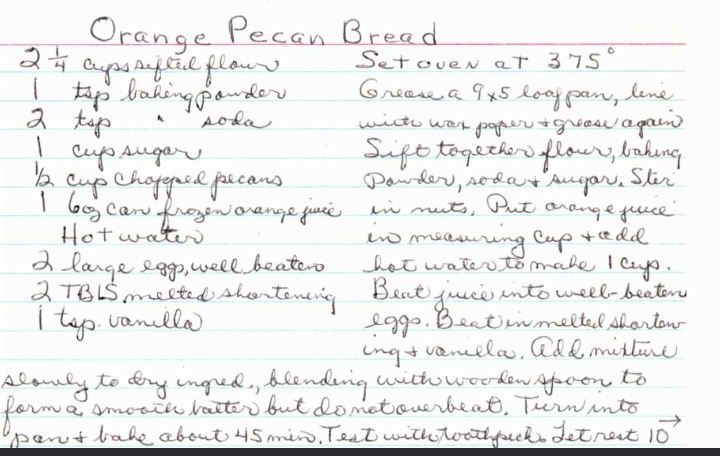 Orange Pecan Bread
2 1/4 cups sifted flour
1 tsp baking powder
2 tsp " soda
1 cup sugar
1/2 cup chopped pecans
1 6oz can frozen orange juice
Hot water
2 large eggs, well beaten
2 TBLS melted shortening
1 tsp. vanilla
Set oven at 375°
Grease a 9x5 loaf pan, line
with wax paper + grease again
Sift together flour, baking
powder, soda + sugar. Stir
in nuts. Put orange juice
in measuring cup + add
hot water to make 1 cup.
Beat juice into well-beaten
eggs. Beat in melted shorten-
ing + vanilla. Add mixture
slowly to dry ingred., blending with wooden spoon to
form a smooth batter but do not overbeat. Turn into
pan + bake about 45 min. Test with toothpick. Let rest 10 →